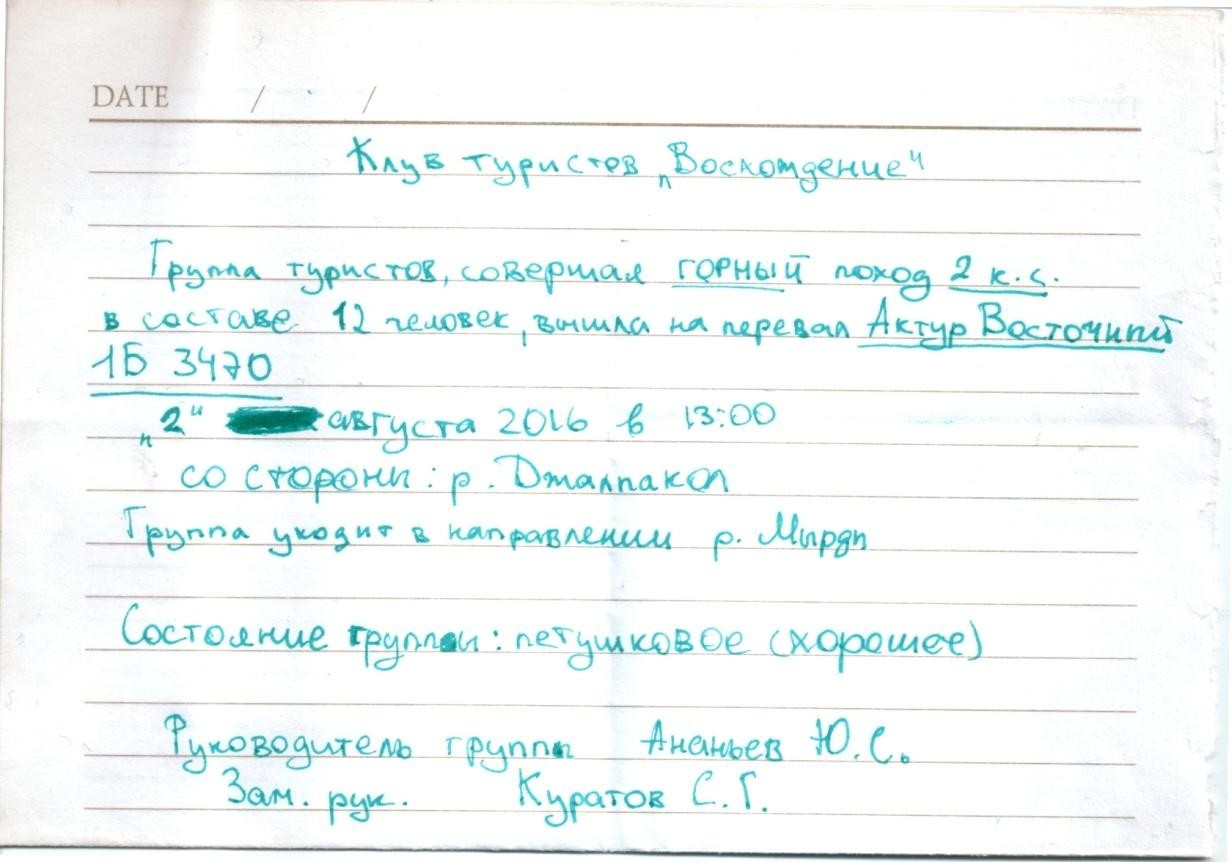 DATE / /
Клуб туристов „Восхождение"
Группа туристов, совершая горный поход 2 к.с.
в составе 12 человек, вышла на перевал Актур Восточный
1Б 3470
„2" августа 2016 в 13:00
со стороны: р. Джалпакол
Группа уходит в направлении р. Мырды
Состояние группы: петушковое (хорошее)
Руководитель группы Ананьев Ю.С.
Зам. рук. Куратов С.Г.